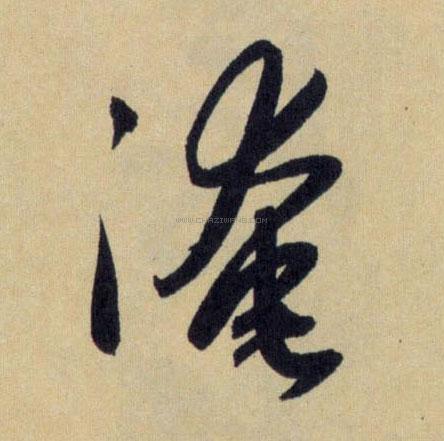 淹
WWW.CHAZIWANG.COM